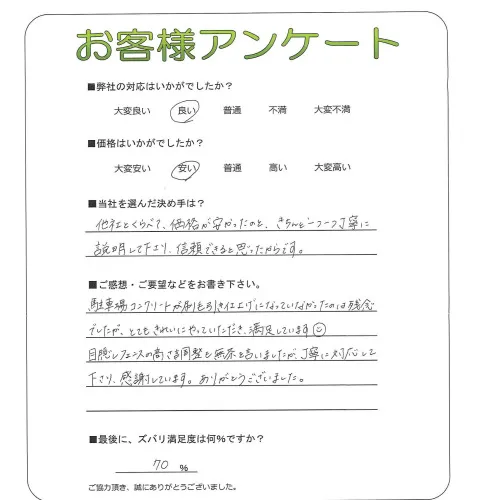 お客様アンケート
■弊社の対応はいかがでしたか？
大変良い 良い 普通 不満 大変不満
■価格はいかがでしたか？
大変安い 安い 普通 高い 大変高い
■当社を選んだ決め手は？
他社とくらべて、価格が安かったのと、きちんと一つ一つ丁寧に
説明して下さり、信頼できると思ったからです。
■ご感想・ご要望などをお書き下さい。
駐車場コンクリートが刷毛引き仕上げになっていなかったのは残念
でしたが、とてもきれいにやっていただき、満足しています☺
目隠しフェンスの高さ調整も無茶を言いましたが、丁寧に対応して
下さり、感謝しています。ありがとうございました。
■最後に、ズバリ満足度は何%ですか？
70 %
ご協力頂き、誠にありがとうございました。